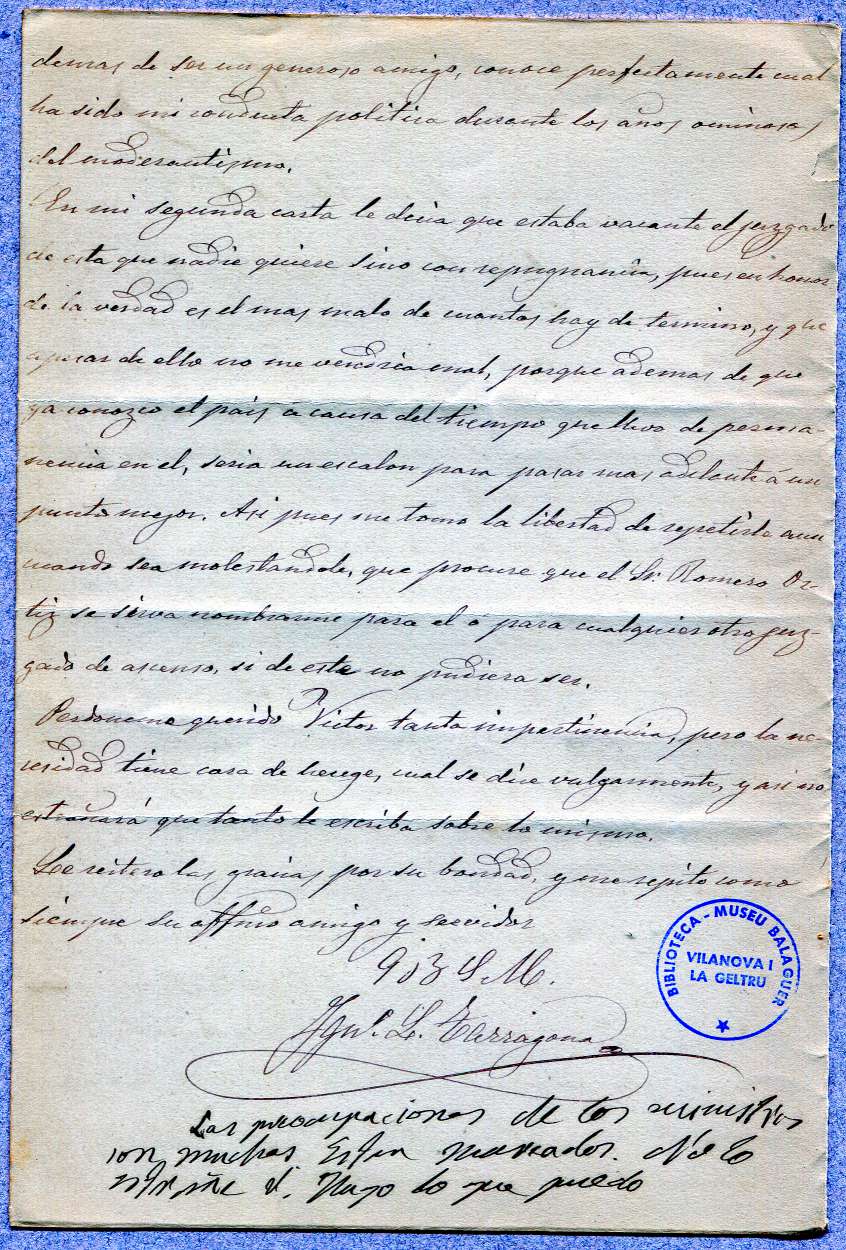 demas de ser un generoso amigo, conoce perfectamente cual
ha sido mi conducta politica durante los años ominosos
del moderantismo.
En mi segunda carta le decia que estaba vacante el juzgado
de esta que nadie quiere sino con repugnancia, pues en honor
de la verdad es el mas malo de cuantos hay de termino, y que
apesar de ello no me vendria mal, porque ademas de que
ya conozco el pais á causa del tiempo que llevo de perma-
nencia en el, seria un escalon para pasar mas adelante á un
punto mejor. Asi pues me tomo la libertad de repetirle aun
cuando sea molestandole, que procure que el Sr. Romero Or-
tiz se sirva nombrarme para el ó para cualquier otro juz-
gado de ascenso, si de este no pudiera ser.
Perdoneme querido Victor tanta impertinencia, pero la ne-
cesidad tiene cara de herege, cual se dice vulgarmente, y asi no
estrañará que tanto le escriba sobre lo mismo.
Le reitero las gracias por su bondad, y me repito como
siempre su affmo amigo y servidor
Q B S M.
Ign.º L. Tarragona
Las preocupaciones de los ministros
son muchas Estan mareados. No lo
estrañe V. Hago lo que puedo
BIBLIOTECA - MUSEU BALAGUER
VILANOVA I
LA GELTRU